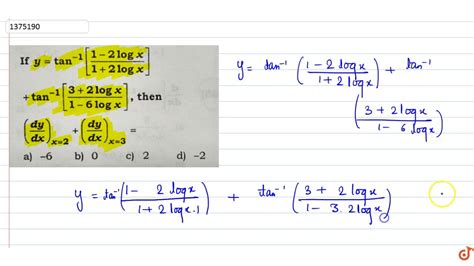 1375190
If y = tan⁻¹ [ (1 − 2 log x) / (1 + 2 log x) ]
+ tan⁻¹ [ (3 + 2 log x) / (1 − 6 log x) ] , then
(dy/dx)ₓ₌₂ + (dy/dx)ₓ₌₃ =
a) –6 b) 0 c) 2 d) –2
y = tan⁻¹ ( (1 − 2 log x) / (1 + 2 log x) ) + tan⁻¹
( (3 + 2 log x) / (1 − 6 log x) )
y = tan⁻¹ ( (1 − 2 log x) / (1 + 2 log x . 1) ) + tan⁻¹ ( (3 + 2 log x) / (1 − 3. 2 log x) )